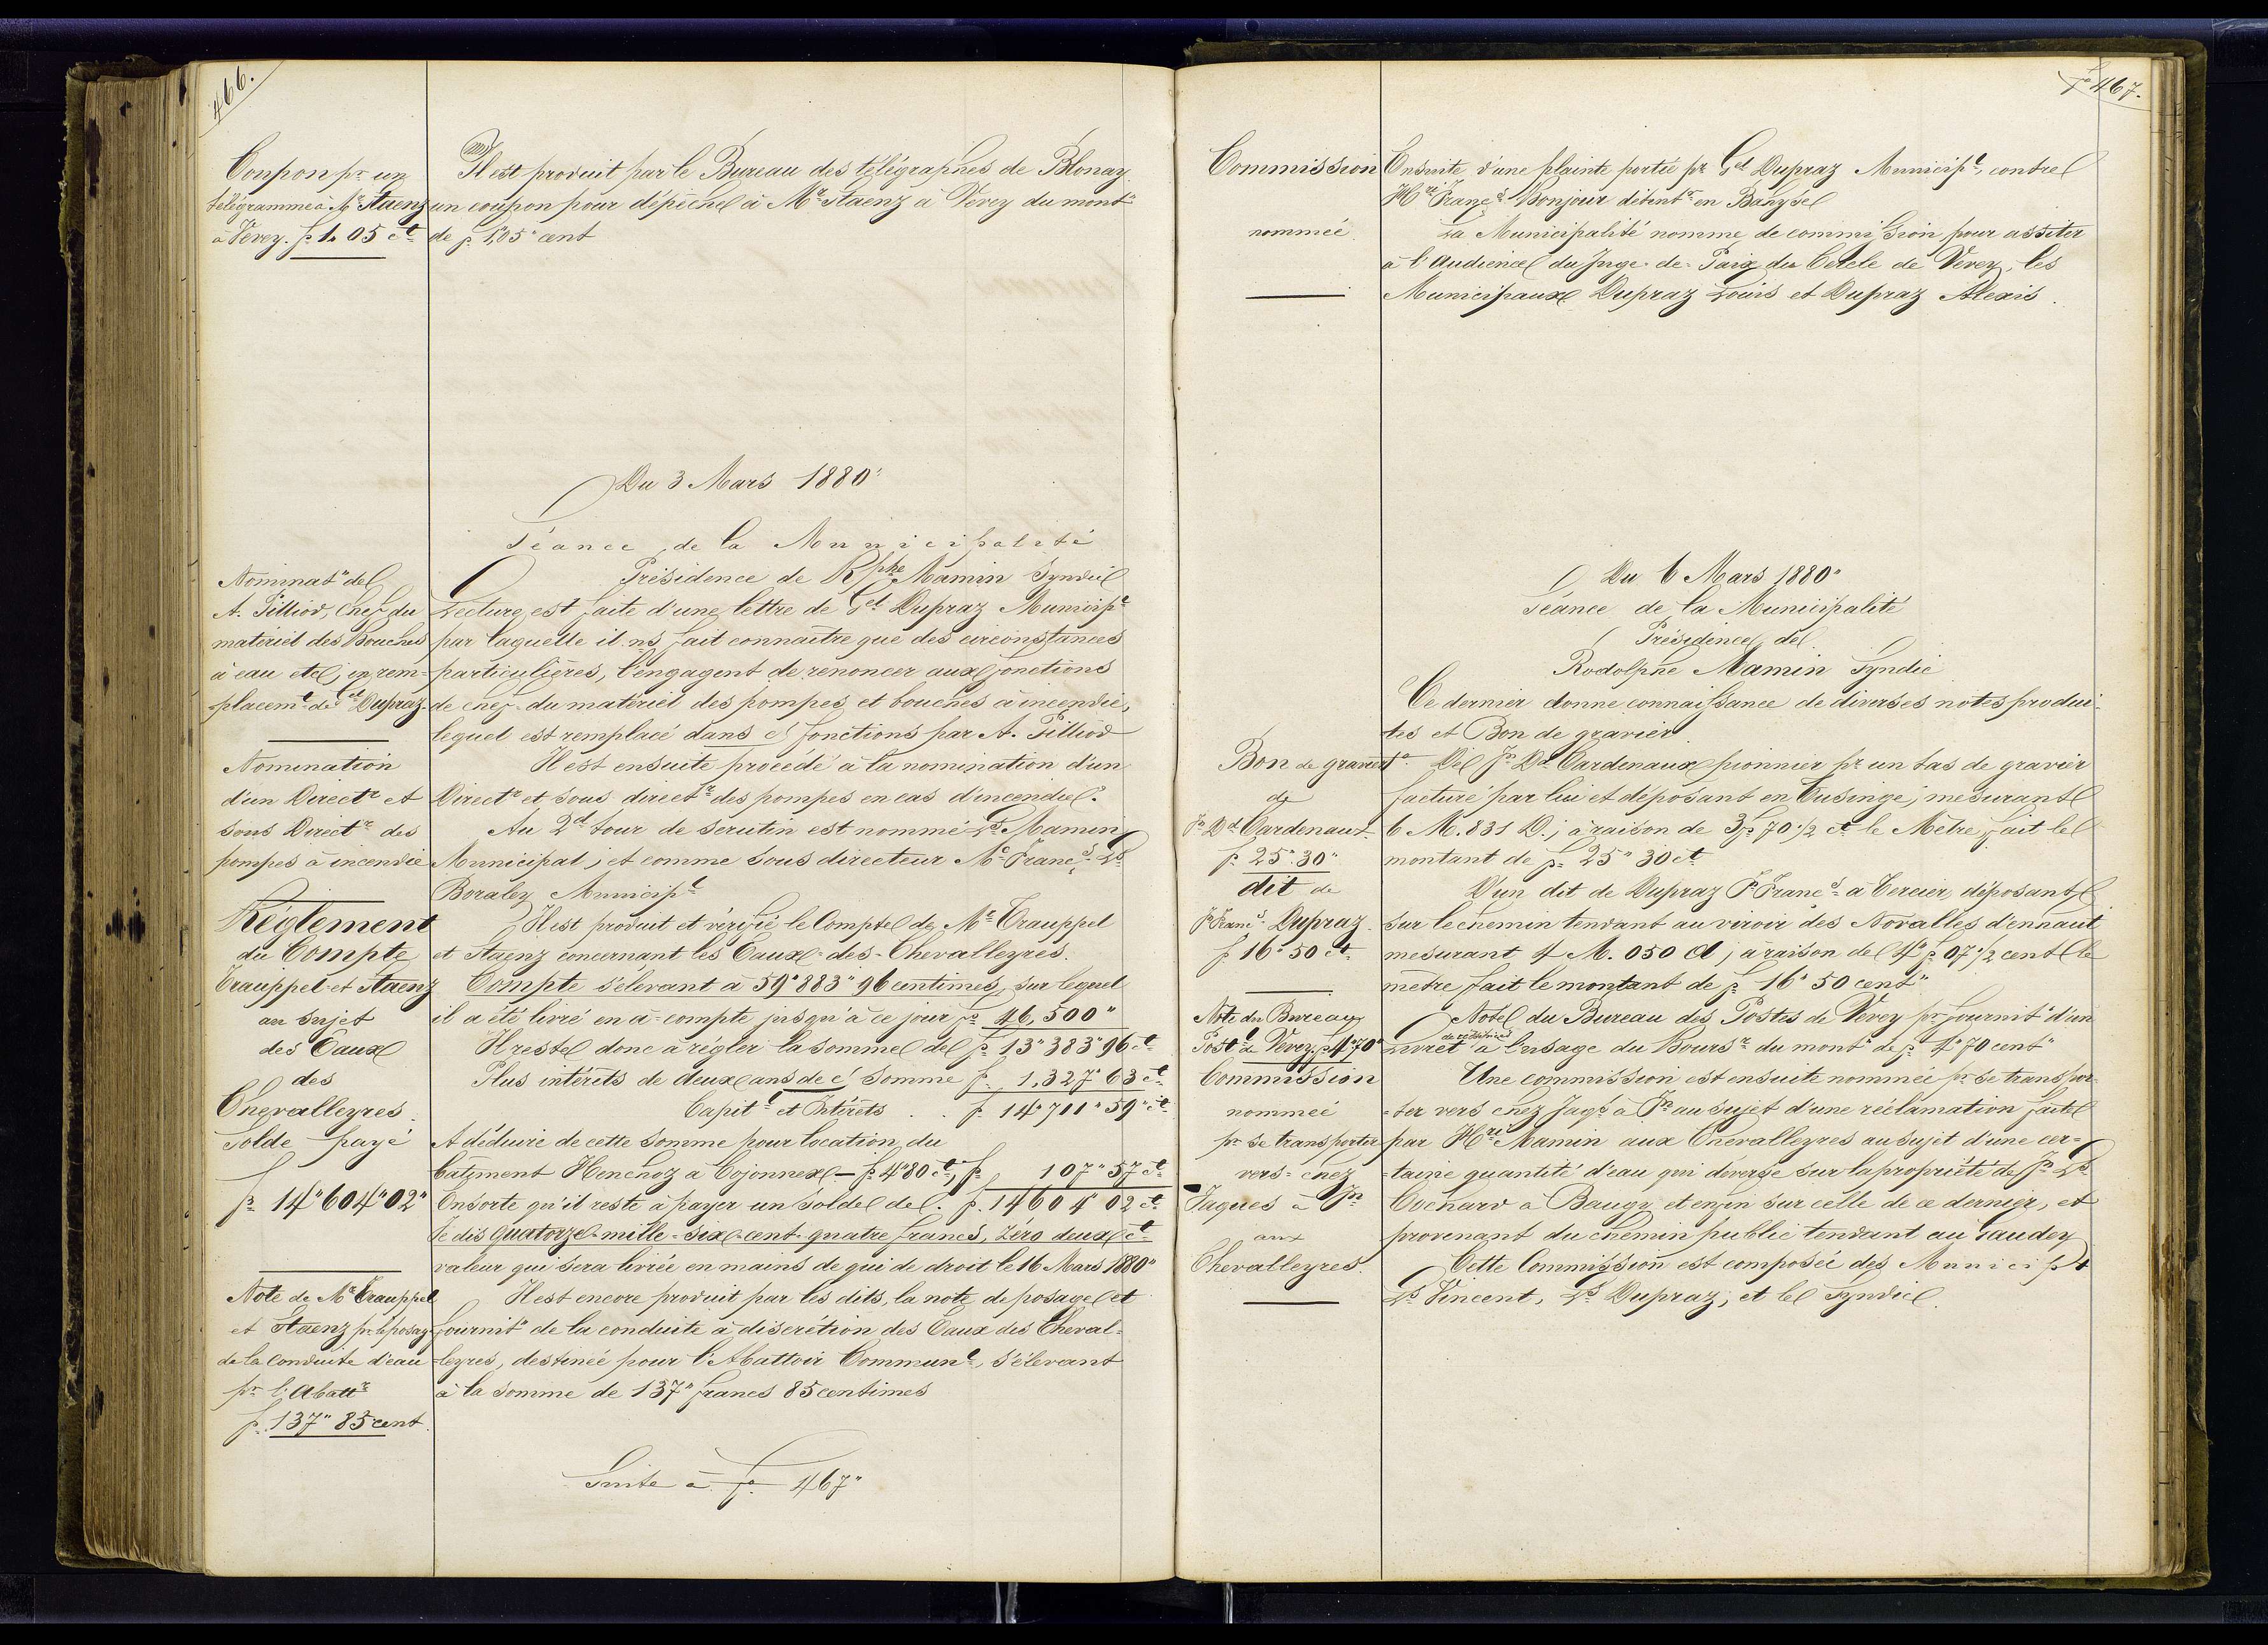 466.
Coupon pr un
télégramme à Mr Staenz
à Vevey. fr 1. 05 ct
Il est produit par le Bureau des télégraphes de Blonay
un coupon pour dépêche à Mr Staenz à Vevey du mont
de fr 1,05" cent
Du 3 Mars 1880"
Séance de la Municipalité
Présidence de Rphe Mamin Syndic
Nominatn de
A. Pilliod, Chef du
matériel des Bouches
à eau etc, en rem-
placemt de Gel Dupraz.
Lecture est faite d'une lettre de Gel Dupraz Municipl
par laquelle il ns fait connaître que des circonstances
particulières, l'engagent de renoncer aux fonctions
de chef du matériel des pompes et bouches à incendie,
lequel est remplacé dans cs fonctions par A. Pilliod
Nomination
d'un Directr et
sous Directr des
pompes à incendie
Il est ensuite procédé à la nomination d'un
Directr et sous directr des pompes en cas d'incendie.
Au 2d tour de scrutin est nommé Ls Mamin
Municipal; et comme sous directeur Mc Francs Ls
Boraley Municipl
Réglement
du Compte
Trauppel et Staenz
au sujet
des Eaux
des
Chevalleyres.
Solde payé
fr 14"604"02"
Il est produit et vérifié le Compte de Mr Trauppel
et Staenz concernant les Eaux-des-Chevalleyres.
Compte s'élevant à 59"883"96 centimes, sur lequel
il a été livré en à-compte jusqu'à ce jour fr 46,500"
Il reste donc à régler la somme de fr 13"383"96 ct
Plus intérêts de deux ans de cs somme fr 1,327"63 ct
Capitl et Intérêts . . fr 14"711"59" ct
A déduire de cette somme pour location du
bâtiment Henchoz à Cojonnex - fr 4"80 ct, fr 107"57 ct
Ensorte qu'il reste à payer un solde de. fr. 14604"02 ct
Je dis quatorze-mille-six-cent-quatre francs, zéro deux ct
valeur qui sera livrée en mains de qui de droit le 16 Mars 1880"
Note de Mr Trauppel
et Staenz pr le posage
de la Conduite d'eau
pr l'Abattr
fr. 137" 85 cent.
Il est encore produit par les dits, la note de posage et
fournit de la conduite à discrétion des Eaux des Cheval-
-leyres, destinée pour l'Abattoir Communl, s'élevant
à la somme de 137" francs 85 centimes
Suite à fo 467"
fo 467.
Commission
nommée
Ensuite d'une plainte portée pr Gel Dupraz Municipl, contre
Hri Francs Bonjour détentr en Bahyse
La Municipalité nomme de commission pour assiter
à l'Audience du Juge-de-Paix du Cercle de Vevey, les
Municipaux Dupraz Louis et Dupraz Alexis.
Du 6 Mars 1880"
Séance de la Municipalité
Présidence de
Rodolphe Mamin Syndic
Ce dernier donne connaissance de diverses notes produi-
tes et Bon de gravier
Bon de gravier
de
Jn Dd Cardenaux
fr 25".30"
1o De Jn Dd Cardenaux pionnier pr un tas de gravier
facturé par lui et déposant en Tusinge, mesurant
6 M. 831 D.; à raison de 3 fr 70 1/2 ct le Mètre, fait le
montant de fr 25" 30 ct
dit de
Jn Francs Dupraz.
fr 16" 50 ct
D'un dit de Dupraz Jn Francs à Tercier, déposant
sur le chemin tendant au viroir des Novalles d'enhaut
mesurant 4 M. 050 d; à raison de 4" fr 07 1/2 cent le
mètre fait le montant de fr 16" 50 cent"
Note du Bureau
Postl de Vevey fr 4"70"
Note du Bureau des Postes de Vevey pr fournit d'un
Livret à l'usage du Boursr du mont de fr 4" 70 cent"
Commission
nommée
pr se transporter
vers-chez
Jaques à Jn
aux
Chevalleyres.
Une commission est ensuite nommée pr se transpor-
-ter vers chez Jaqs à Jn au sujet d'une réclamation faite
par Hri Mamin aux Chevalleyres au sujet d'une cer-
-taine quantité d'eau qui déverse sur la propriété de Jn Ls
Cochard à Baugy et enfin sur celle de ce dernier, et
provenant du chemin public tendant au Gaudey
Cette Commission est composée des Municipx
Ls Vincent, Ls Dupraz, et le Syndic.